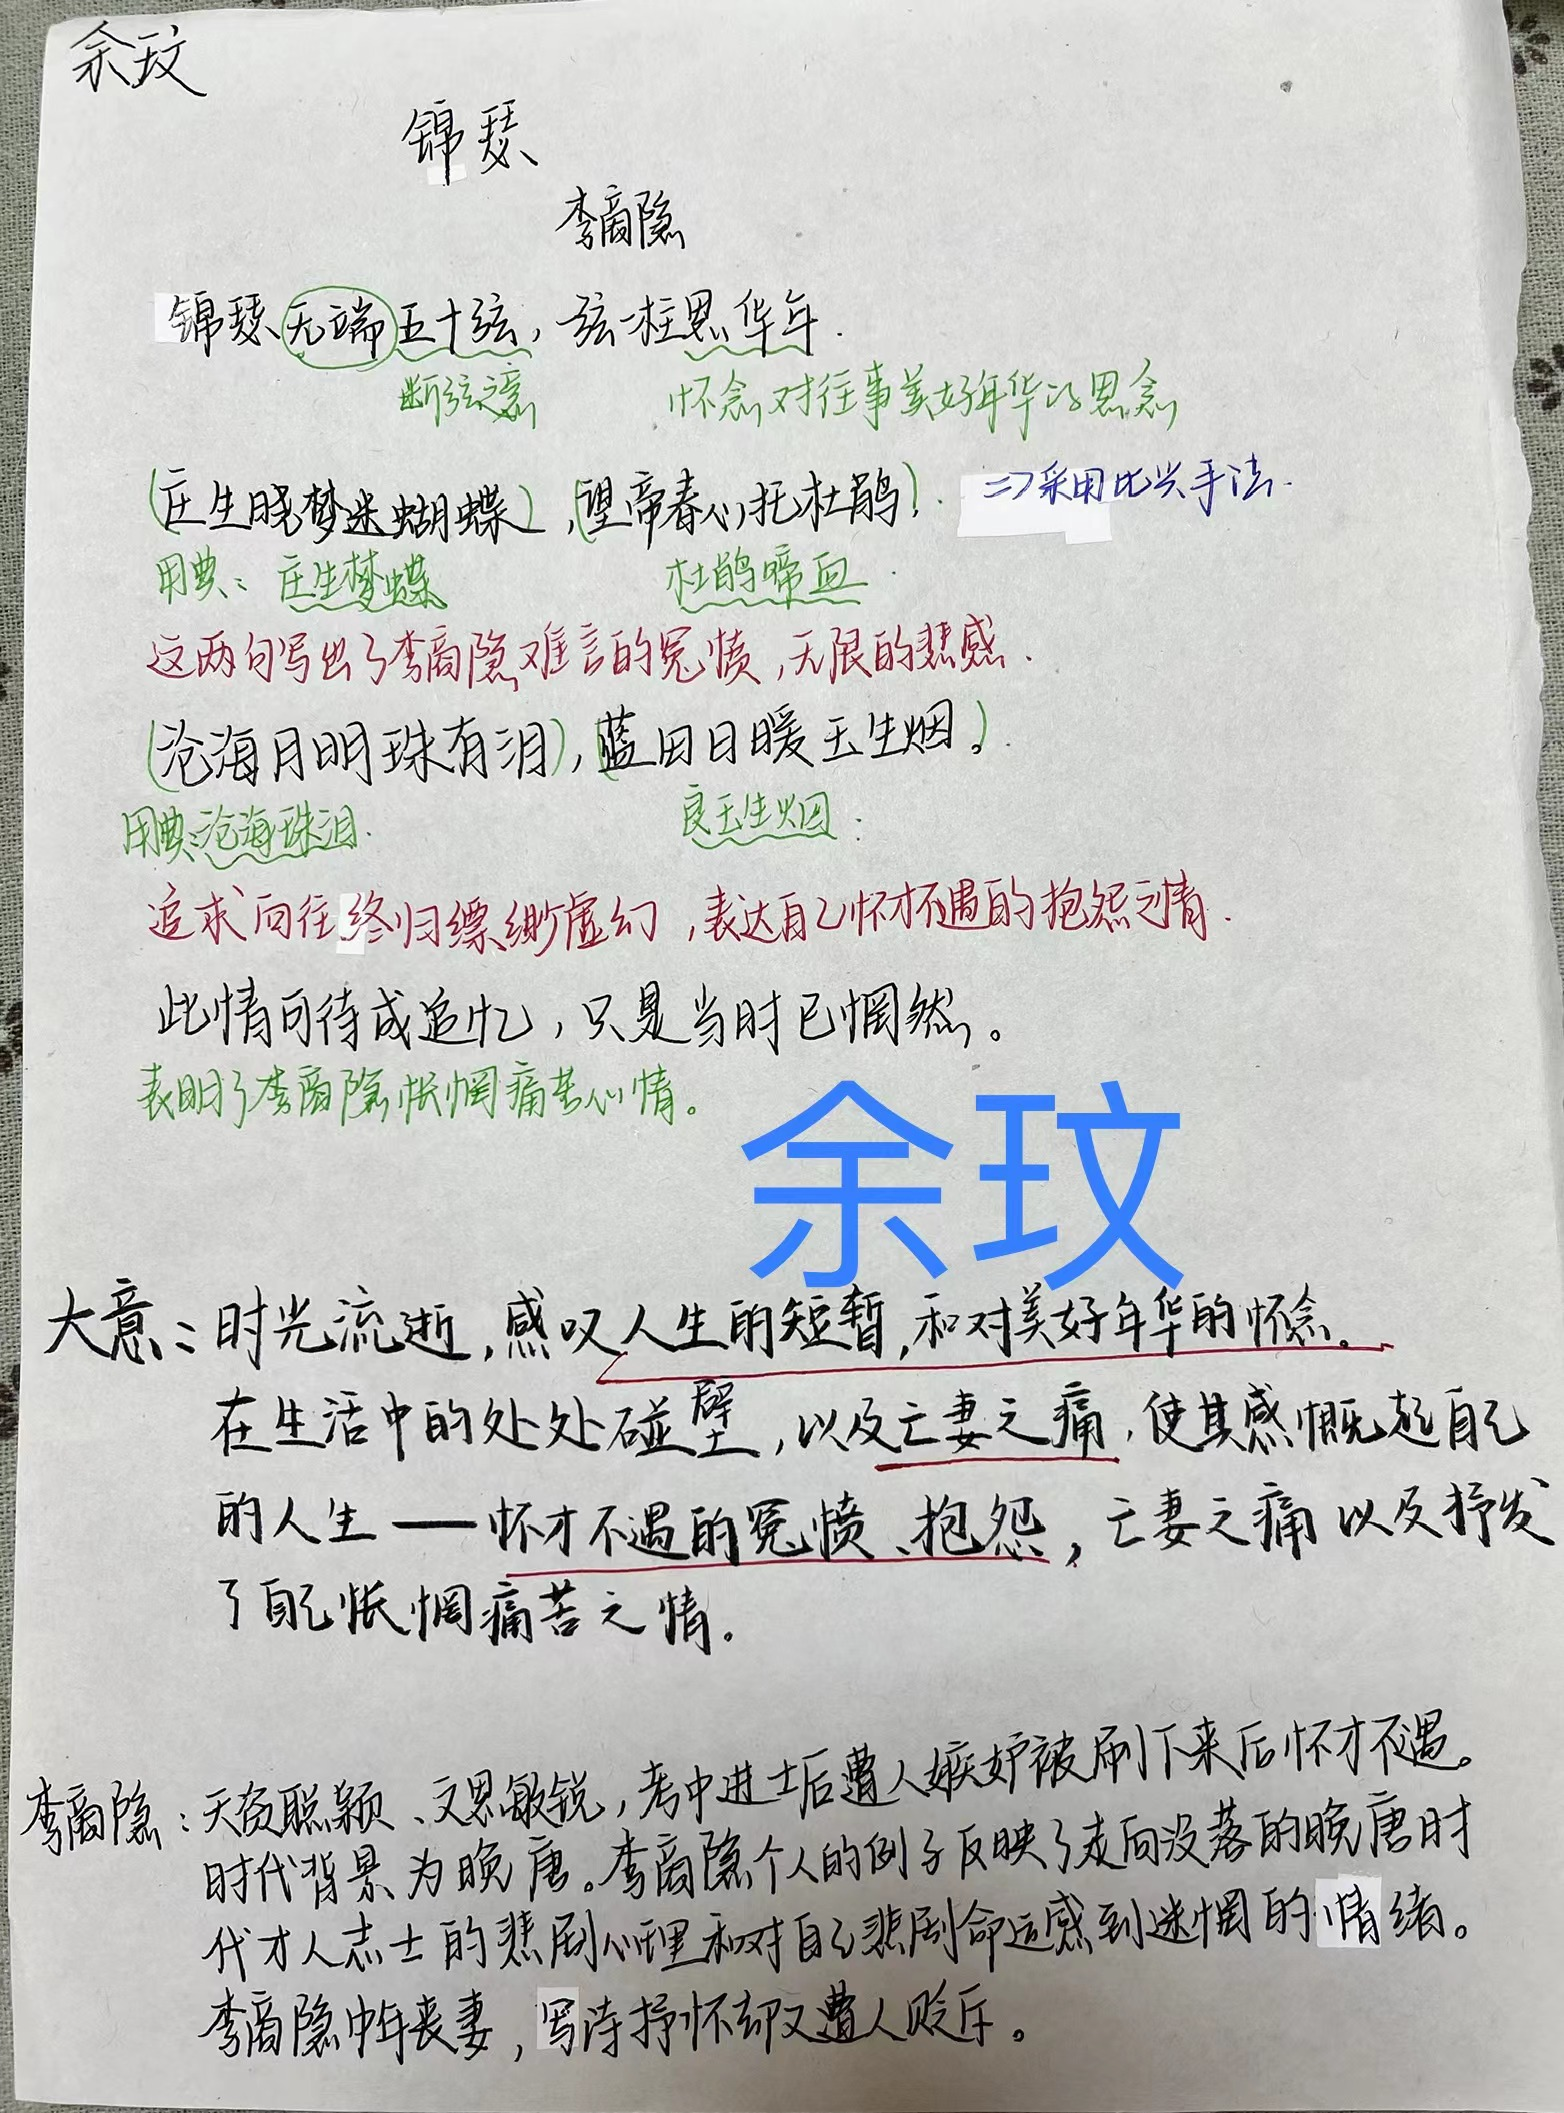 余玟
锦瑟
李商隐
锦瑟无端五十弦，一弦一柱思华年.
断弦之意 怀念对往事美好年华的思念
(庄生晓梦迷蝴蝶)，(望帝春心托杜鹃). =>采用比兴手法.
用典：庄生梦蝶 杜鹃啼血.
这两句写出了李商隐难言的冤愤，无限的悲感.
(沧海月明珠有泪)，(蓝田日暖玉生烟。)
用典：沧海珠泪. 良玉生烟：
追求向往终归缥缈虚幻，表达自己怀才不遇的抱怨之情.
此情可待成追忆，只是当时已惘然。
表明了李商隐怅惘痛苦心情。
余玟
大意：时光流逝，感叹人生的短暂，和对美好年华的怀念。
在生活中的处处碰壁，以及亡妻之痛，使其感慨起自己
的人生——怀才不遇的冤愤、抱怨，亡妻之痛以及抒发
了自己怅惘痛苦之情。
李商隐：天资聪颖、文思敏锐，考中进士后遭人嫉妒被刷下来后怀才不遇。
时代背景为晚唐。李商隐个人的例子反映了走向没落的晚唐时
代才人志士的悲剧心理和对自己悲剧命运感到迷惘的情绪。
李商隐中年丧妻，写诗抒怀却又遭人贬斥。